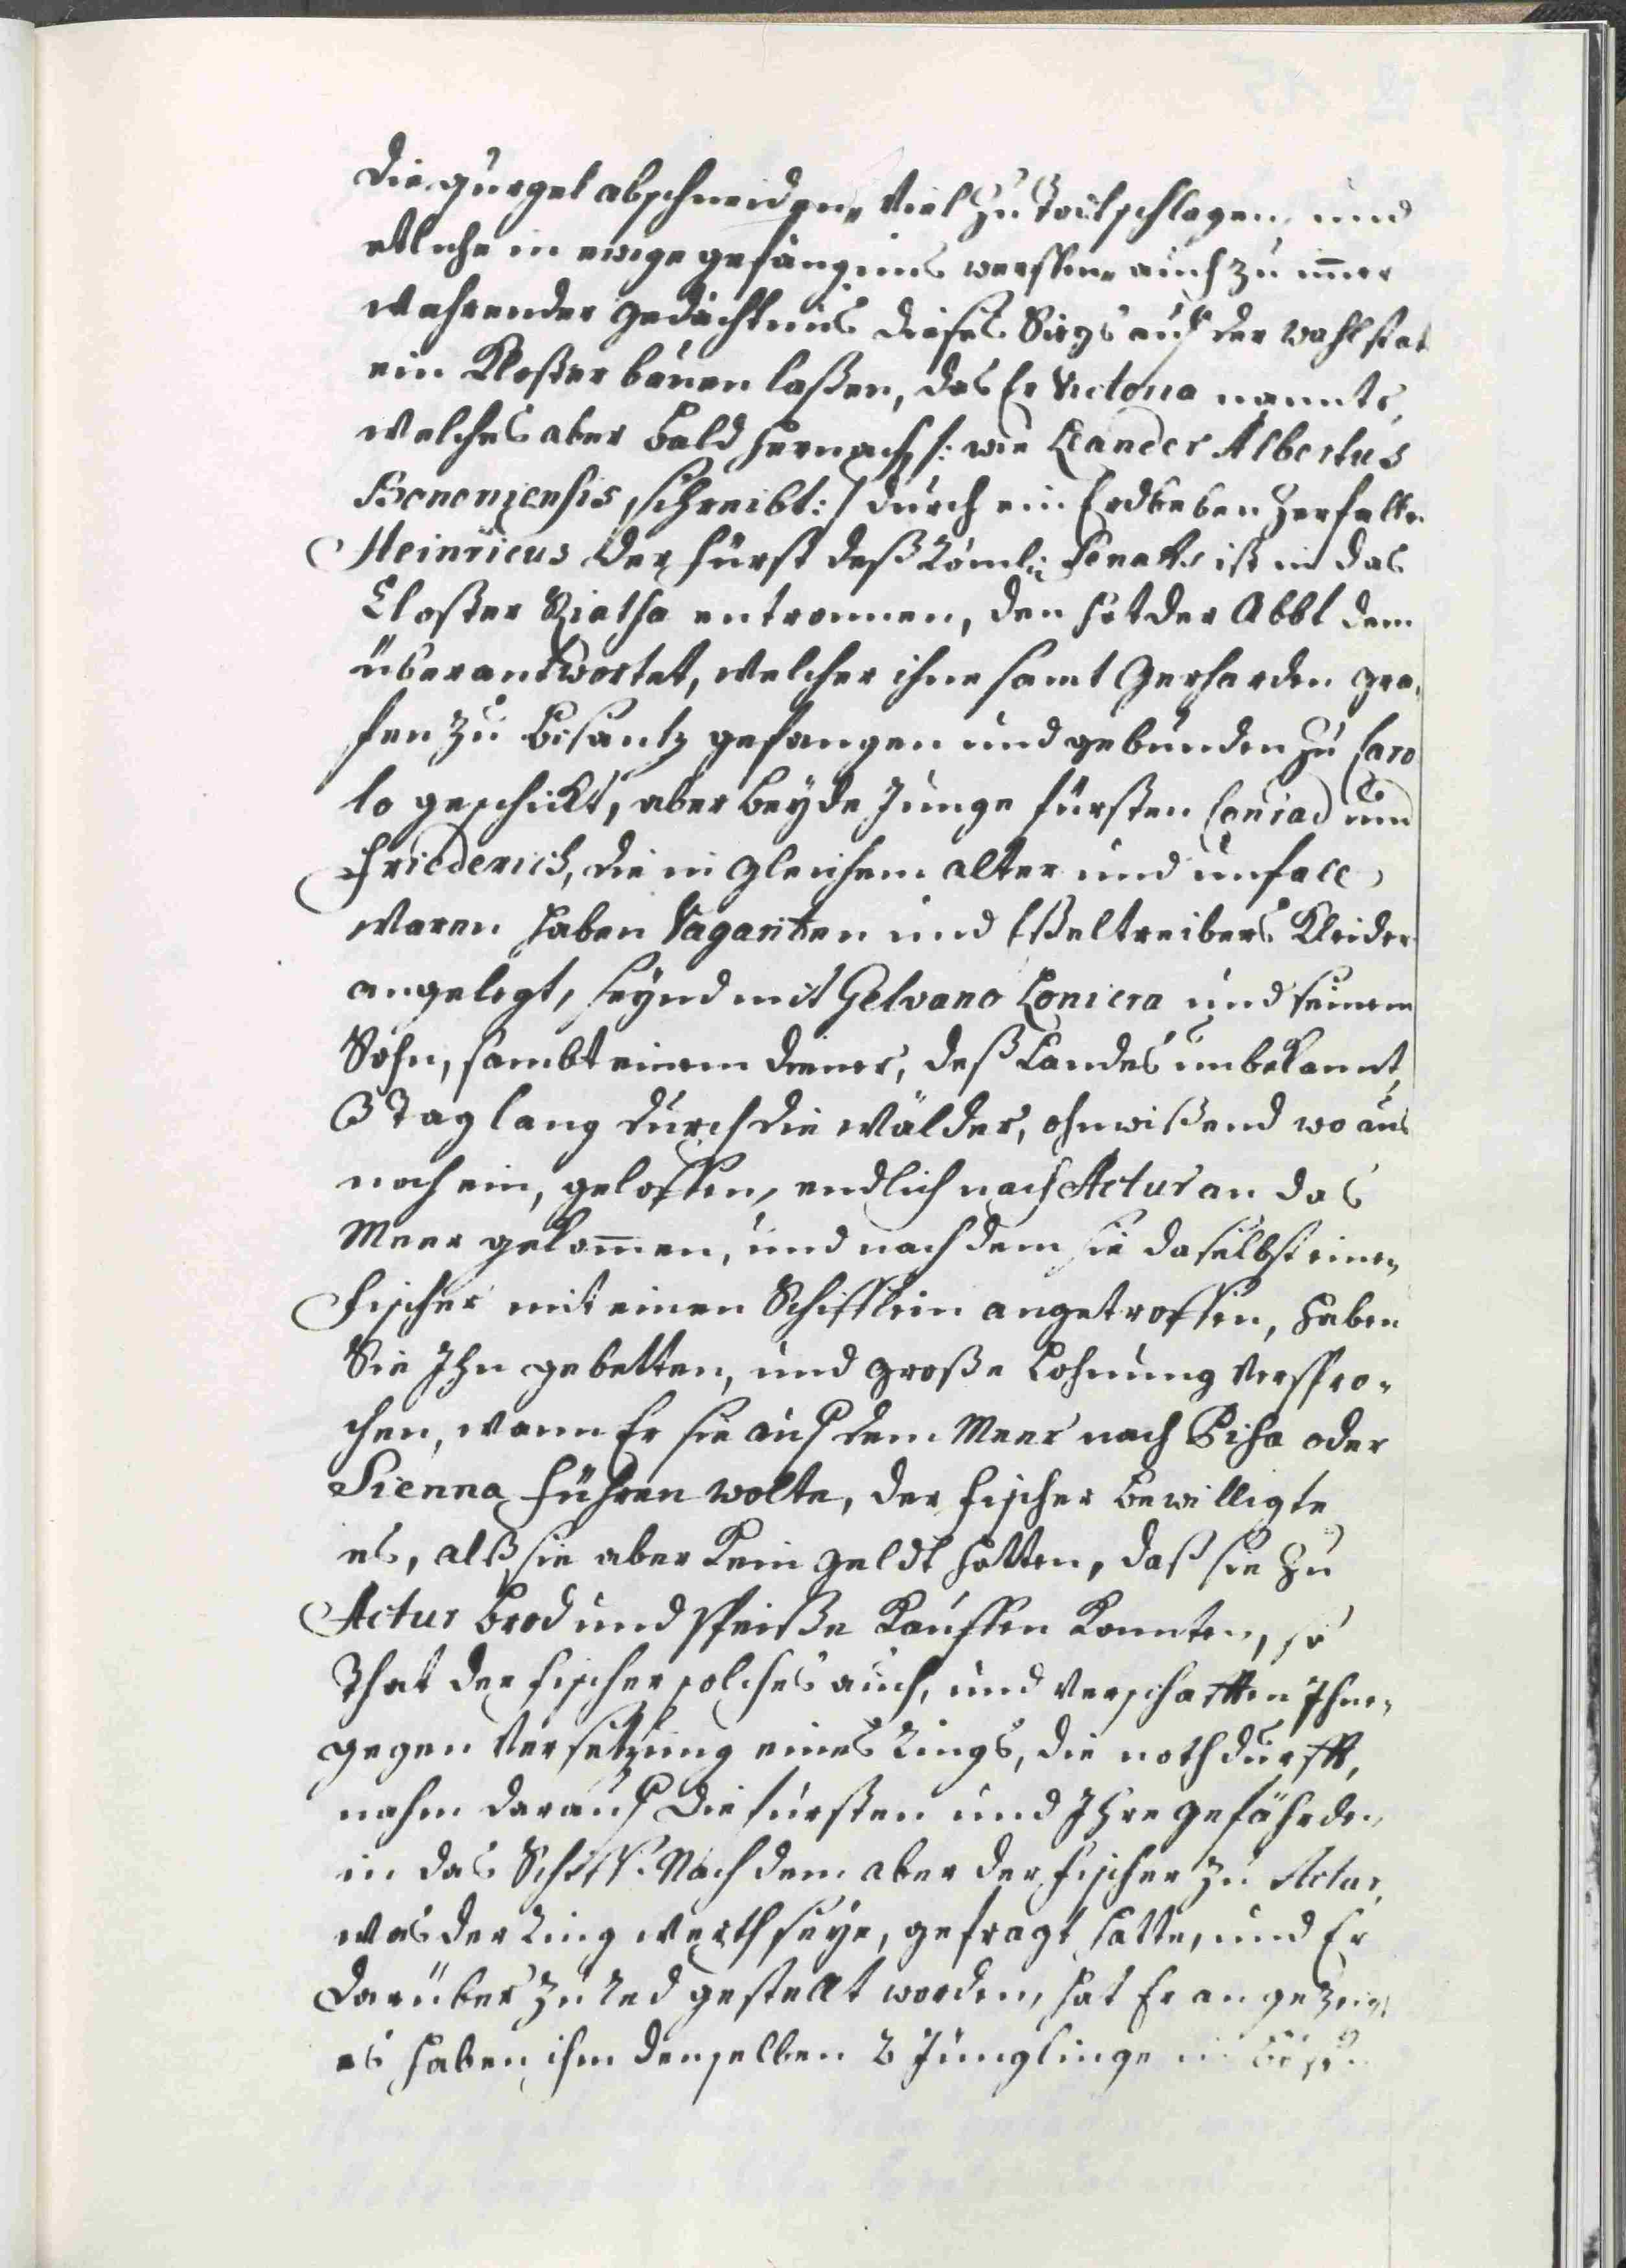 die gurgel abschneiden, viel zu Todt schlagen, und
etliche in ewige gefängnus werffen, auch zu immer
wehrender gedächtnus dieses Siegs auf der wahlstat
ein Kloster bauen laßen, das Er Victoria nannte,
welches aber bald hernach /: wie Leander Albertus
Bononiensis schreibt:/ durch ein Erdbeben zerfalle.
Heinricus der fürst deß Römln Senats ist in das
Closter Riatha entronnen, den hat der Abbt dem
überantwortet, welcher ihne samt Gerharden gra,
fen zu Bisantz gefangen und gebunden zu Caro
lo geschickt, aber beyde Junge fürsten Conrad und
Friederich, die in gleichem alter und unfall
waren haben Vaganten und Eßeltreibers Kleider
angelegt, seynd mit Gelvano Loniera und seinem
Sohn, sambt einem diener, deß Landes unbekannt,
3 Tag lang durch die Wälder, ohnwißend wo aus
noch ein, geloffen, endlich nach Actur an das
Meer gekommen, und nach dem sie daselbst einen
fischer mit einen Schifflein angetroffen, haben
Sie Ihn gebetten, und große Lohnung verspro-
chen, wann Er sie auf dem Meer nach Pisa oder
Sienna führen wolte, der fischer bewilligte
es, alß sie aber kein geldt hatten, daß sie zu
Actur brod und speiße kauffen konnten, so
That der fischer solches auch, und verschafften Ihne,
gegen Versetzung eines Rings, die nothdurfft,
nahm darauf die fürsten und Ihre gefährden
in das Schiff. Nach dem aber der fischer zu Actur,
was der Ring werth seye, gefragt hatte, und Er
darüber zu Red gestellt worden, hat Er angezeigt
es haben ihm denselben 2 Jünglinge in